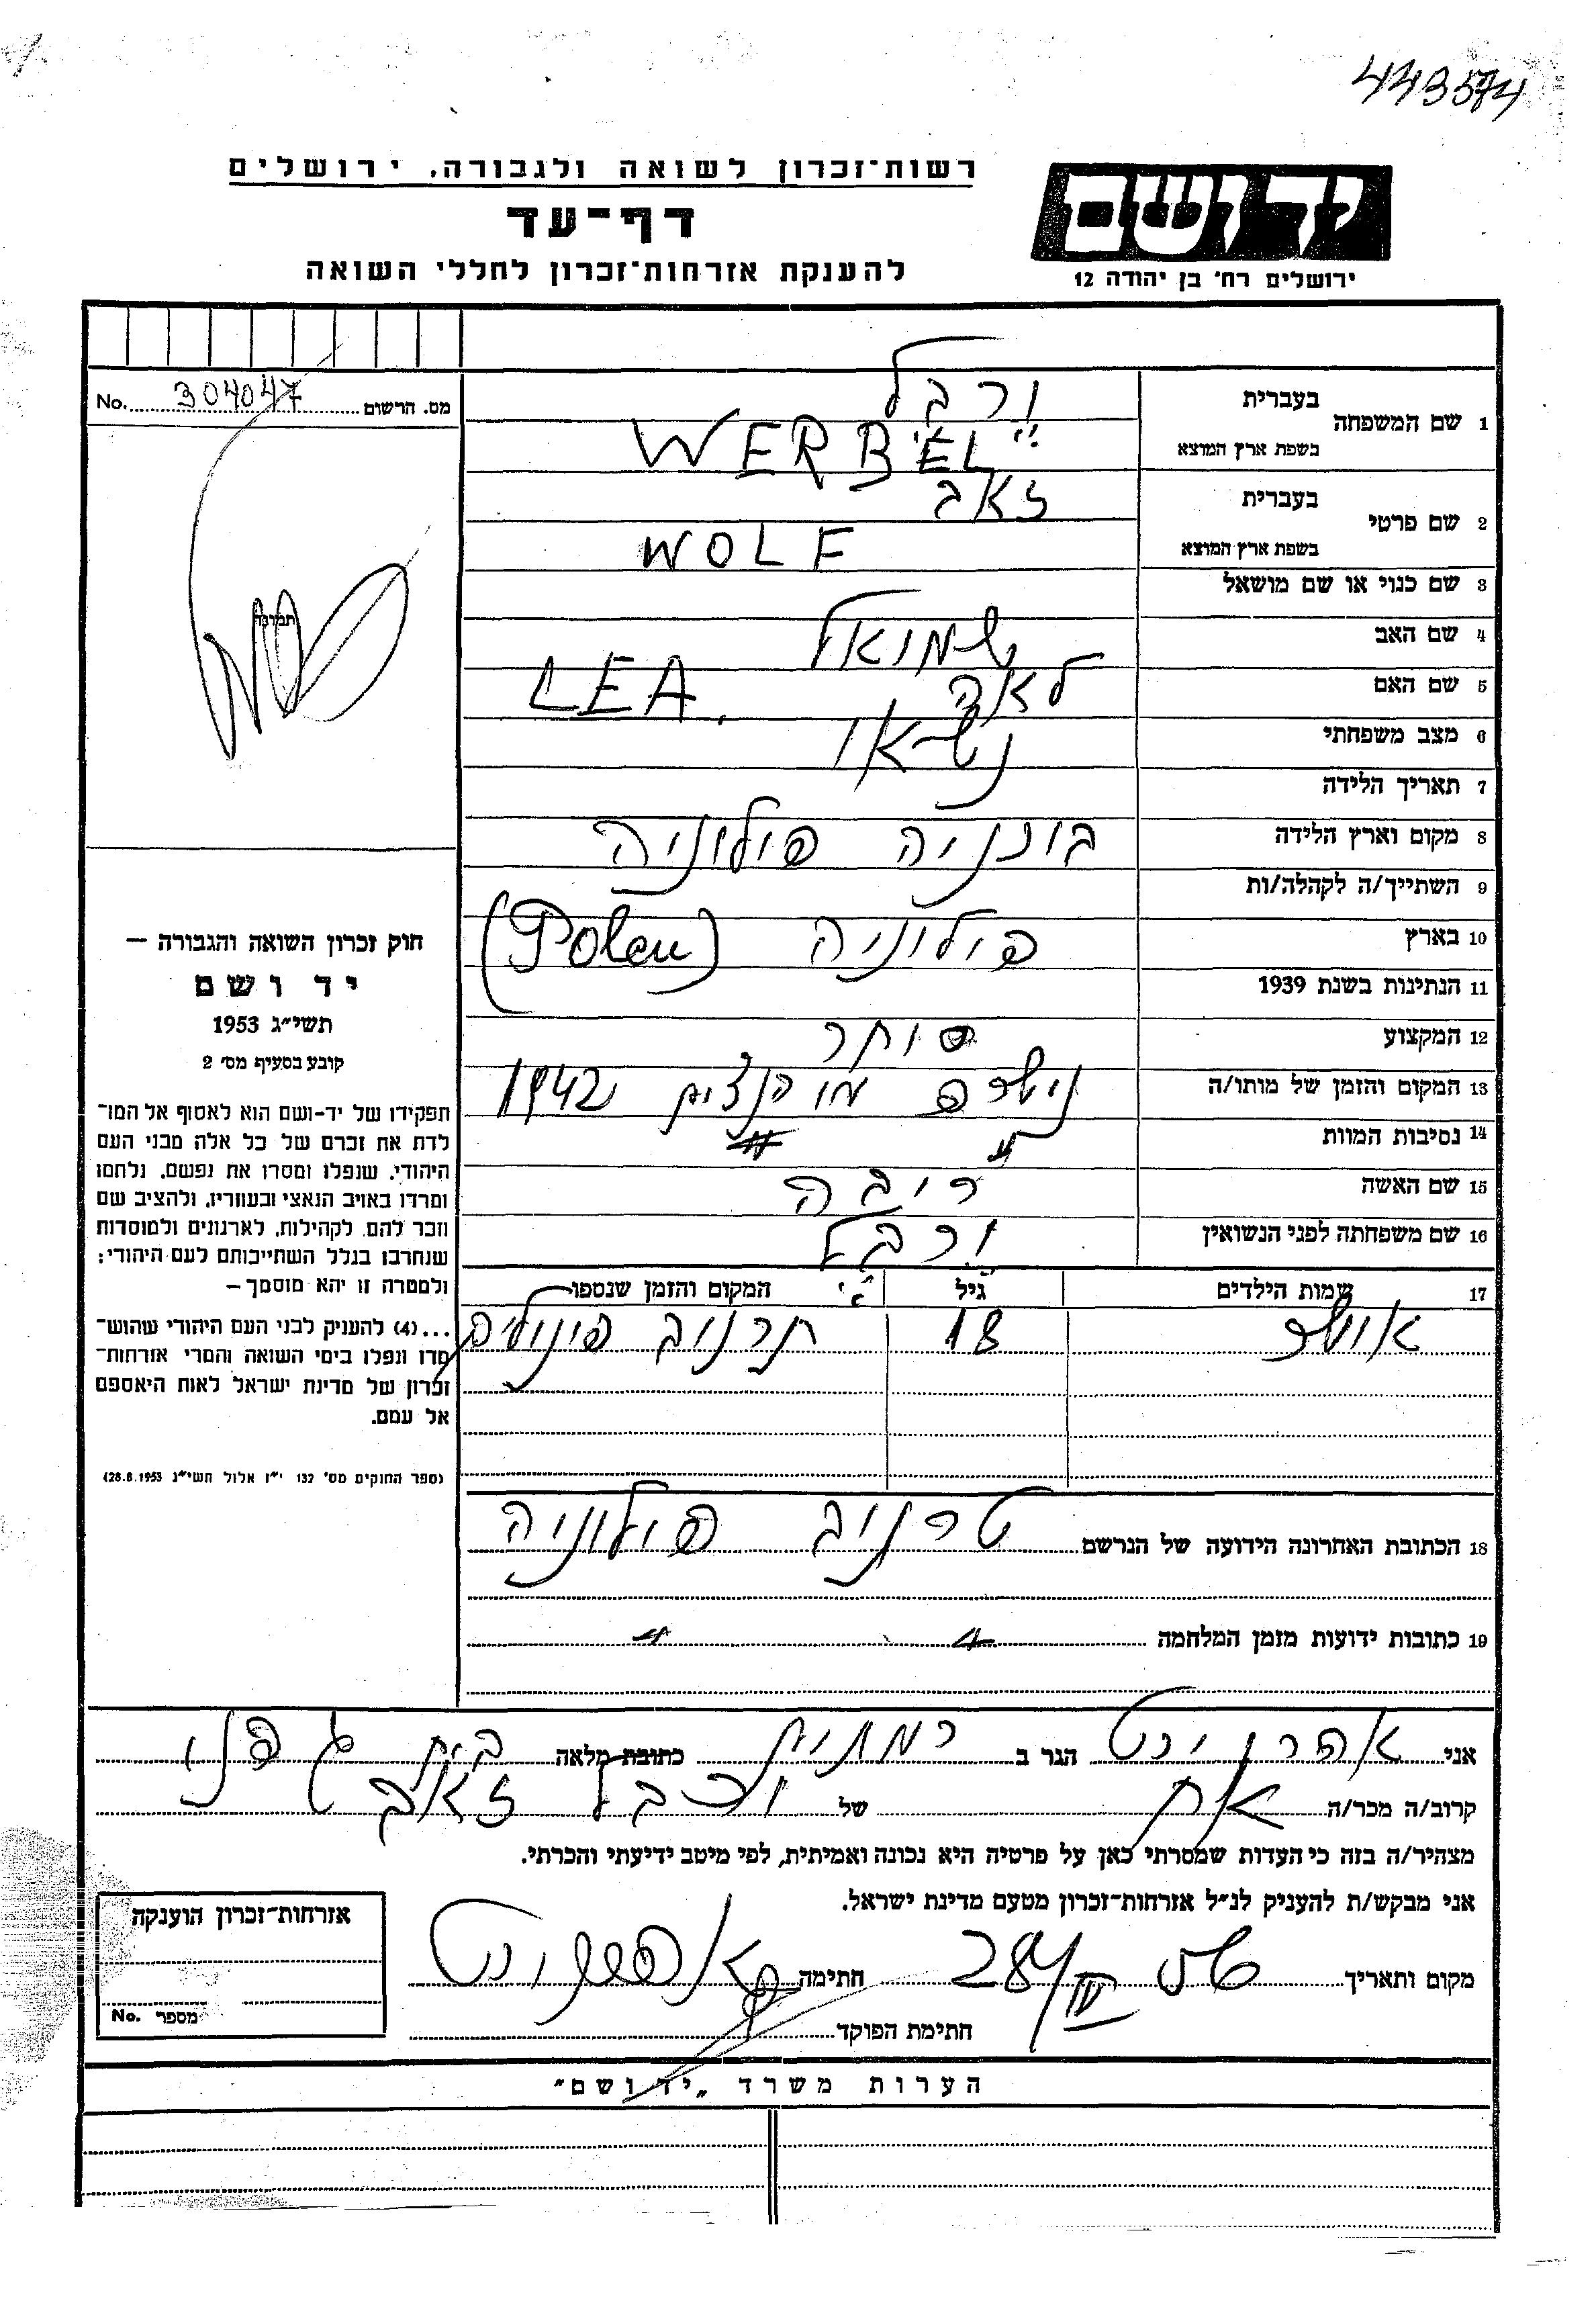 443574
רשות־זכרון לשואה ולגבורה, ירושלים
דף-עד
להענקת אזרחות־זכרון לחללי השואה
יד ושם
ירושלים רח' בן יהודה 12
מס. הרשום 304047 No.
1 שם המשפחה בעברית ורבל
בשפת ארץ המוצא WERBEL
2 שם פרטי בעברית זאב
בשפת ארץ המוצא WOLF
3 שם כנוי או שם מושאל
4 שם האב שמואל
5 שם האם לאה LEA
6 מצב משפחתי נשאוי
7 תאריך הלידה
8 מקום וארץ הלידה פולוניה
9 השתייך/ה לקהלה/ות
10 בארץ פולוניה (Polen)
11 הנתינות בשנת 1939
12 המקצוע סוחר
13 המקום והזמן של מותו/ה 1942
14 נסיבות המוות
15 שם האשה ריבה
16 שם משפחתה לפני הנשואין ורבל
17 שמות הילדים גיל המקום והזמן שנספו
18
18 הכתובת האחרונה הידועה של הנרשם טרנוב פולוניה
19 כתובות ידועות מזמן המלחמה
תמונה
חוק זכרון השואה והגבורה —
יד ושם
תשי"ג 1953
קובע בסעיף מס' 2
תפקידו של יד-ושם הוא לאסוף אל המו־
לדת את זכרם של כל אלה מבני העם
היהודי, שנפלו ומסרו את נפשם, נלחמו
ומרדו באויב הנאצי ובעוזריו, ולהציב שם
וזכר להם, לקהילות, לארגונים ולמוסדות
שנחרבו בגלל השתייכותם לעם היהודי;
ולמטרה זו יהא מוסמך —
...(4) להעניק לבני העם היהודי שהוש־
מדו ונפלו בימי השואה והמרי אזרחות־
זכרון של מדינת ישראל לאות היאספם
אל עמם.
(ספר החוקים מס' 132 י"ז אלול תשי"ג 28.8.1953)
אני אהרן הגר ב רמתים כתובת מלאה בית
קרוב/ה מכר/ה אח של ורבל זאב
מצהיר/ה בזה כי העדות שמסרתי כאן על פרטיה היא נכונה ואמיתית, לפי מיטב ידיעתי והכרתי.
אני מבקש/ת להעניק לנ"ל אזרחות־זכרון מטעם מדינת ישראל.
מקום ותאריך 56 חתימה
חתימת הפוקד
אזרחות־זכרון הוענקה
מספר No.
הערות משרד „יד ושם"